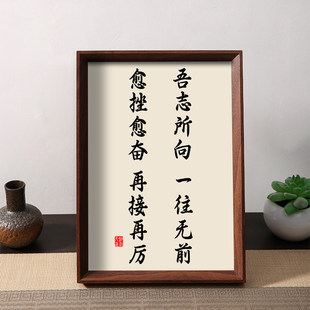 吾志所向 一往无前
愈挫愈奋 再接再厉